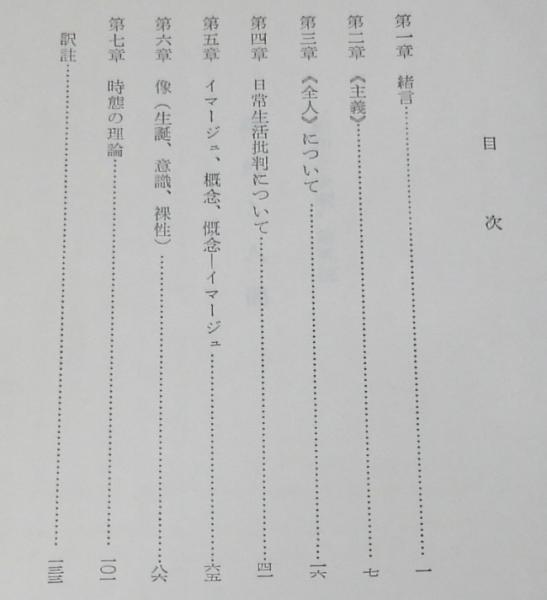 目次
第一章 緒言……一
第二章 《主義》……七
第三章 《全人》について……一六
第四章 日常生活批判について……四一
第五章 イマージュ、概念、慨念―イマージュ……六五
第六章 像(生誕、意識、裸性)……八六
第七章 時態の理論……一〇一
訳註……一三三